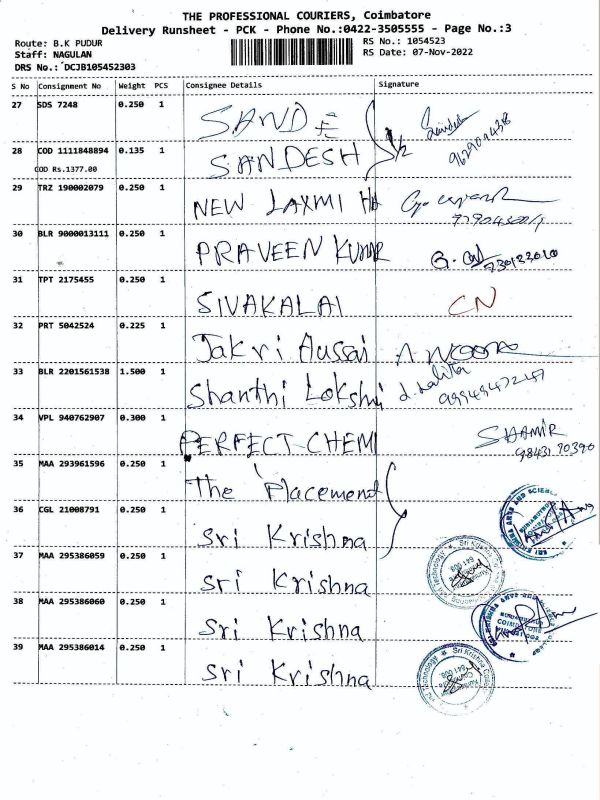 THE PROFESSIONAL COURIERS, Coimbatore
Delivery Runsheet - PCK - Phone No.:0422-3505555 - Page No.:3
Route: B.K PUDUR
Staff: NAGULAN
DRS No.: DCJB105452303
RS No.: 1054523
RS Date: 07-Nov-2022
S No Consignment No Weight PCS Consignee Details Signature
27 SDS 7248 0.250 1 SANDE
28 COD 1111848894 0.135 1 SANDESH
COD Rs.1377.00
29 TRZ 190002079 0.250 1 NEW LAXMI
30 BLR 9000013111 0.250 1 PRAVEEN KUMAR
31 TPT 2175455 0.250 1 SIVAKALAI CN
32 PRT 5042524 0.225 1 Jakri Hussai
33 BLR 2201561538 1.500 1 Shanthi Lokshmi d. Lalita
34 VPL 940762907 0.300 1 PERFECT CHEMI SHAMIR
98431 70390
35 MAA 293961596 0.250 1 The Placement
36 CGL 21008791 0.250 1 Sri Krishna
37 MAA 295386059 0.250 1 Sri Krishna
38 MAA 295386060 0.250 1 Sri Krishna
39 MAA 295386014 0.250 1 Sri Krishna